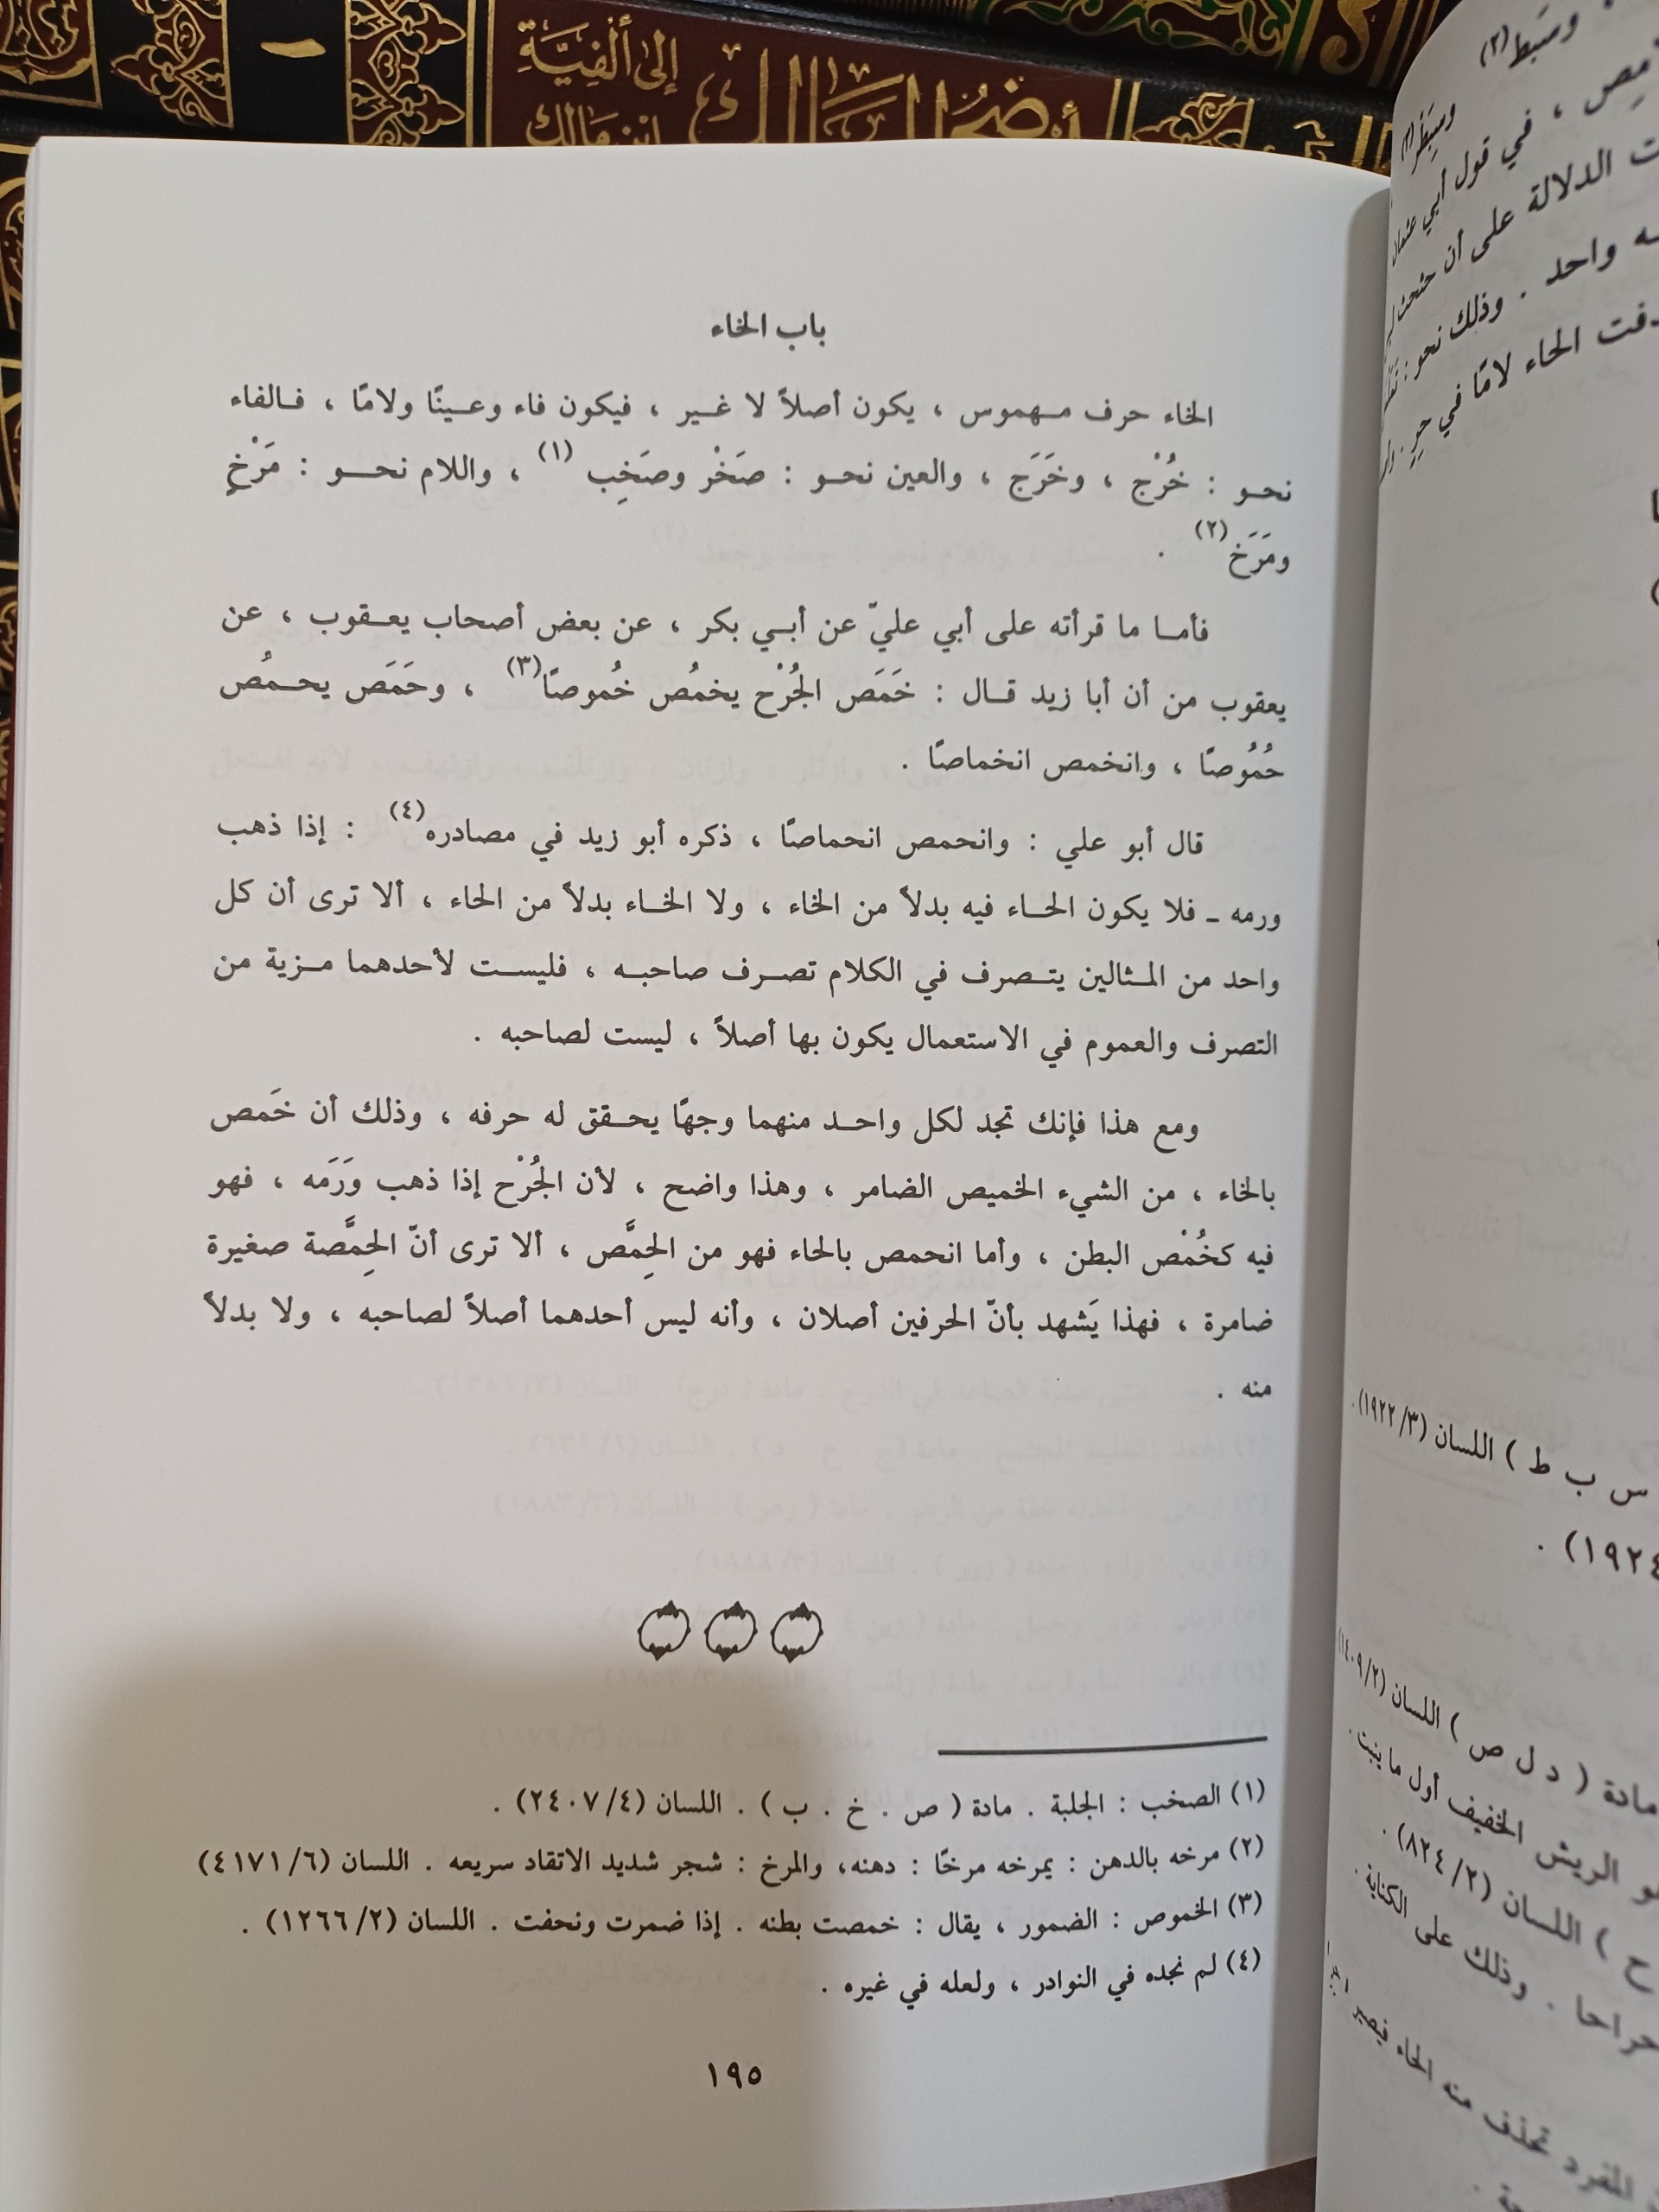 إلى ألفية
ابن مالك
أوضح المسالك
باب الخاء
الخاء حرف مهموس ، يكون أصلاً لا غير ، فيكون فاء وعينًا ولامًا ، فالفاء
نحو : خُرْج ، وخَرَج ، والعين نحو : صَخْر وصَخِب (١) ، واللام نحو : مَرْخ
ومَرَخ (٢) .
فأما ما قرأته على أبي عليّ عن أبي بكر ، عن بعض أصحاب يعقوب ، عن
يعقوب من أن أبا زيد قال : خَمَص الجُرْح يخمُص خُموصًا(٣) ، وحَمَص يحمُص
حُمُوصًا ، وانخمص انخماصًا .
قال أبو علي : وانحمص انحماصًا ، ذكره أبو زيد في مصادره(٤) : إذا ذهب
ورمه ـ فلا يكون الحاء فيه بدلاً من الخاء ، ولا الخاء بدلاً من الحاء ، ألا ترى أن كل
واحد من المثالين يتصرف في الكلام تصرف صاحبه ، فليست لأحدهما مزية من
التصرف والعموم في الاستعمال يكون بها أصلاً ، ليست لصاحبه .
ومع هذا فإنك تجد لكل واحد منهما وجهًا يحقق له حرفه ، وذلك أن خَمص
بالخاء ، من الشيء الخميص الضامر ، وهذا واضح ، لأن الجُرْح إذا ذهب وَرَمه ، فهو
فيه كخُمْص البطن ، وأما انحمص بالحاء فهو من الحِمَّص ، ألا ترى أنّ الحِمَّصة صغيرة
ضامرة ، فهذا يَشهد بأنّ الحرفين أصلان ، وأنه ليس أحدهما أصلاً لصاحبه ، ولا بدلاً
منه .
(١) الصخب : الجلبة . مادة ( ص . خ . ب ) . اللسان (٢٤٠٧/٤) .
(٢) مرخه بالدهن : يمرخه مرخًا : دهنه، والمرخ : شجر شديد الاتقاد سريعه . اللسان (٤١٧١/٦)
(٣) الخموص : الضمور ، يقال : خمصت بطنه . إذا ضمرت ونحفت . اللسان (١٢٦٦/٢) .
(٤) لم نجده في النوادر ، ولعله في غيره .
١٩٥
وسَبط(٢)
وسِبَطْر(٣)
، في قول أبي عثمان
الدلالة على أن حثحث
واحد . وذلك نحو :
الحاء لامًا في حِرٍ
س ب ط ) اللسان (١٩٢٢/٣) .
مادة ( د ل ص ) اللسان (١٤٠٩/٢)
الريش الخفيف أول ما ينبت .
ح ) اللسان (٨٢٤/٢) .
. وذلك على الكناية .
المفرد تحذف منه الحاء فيصير